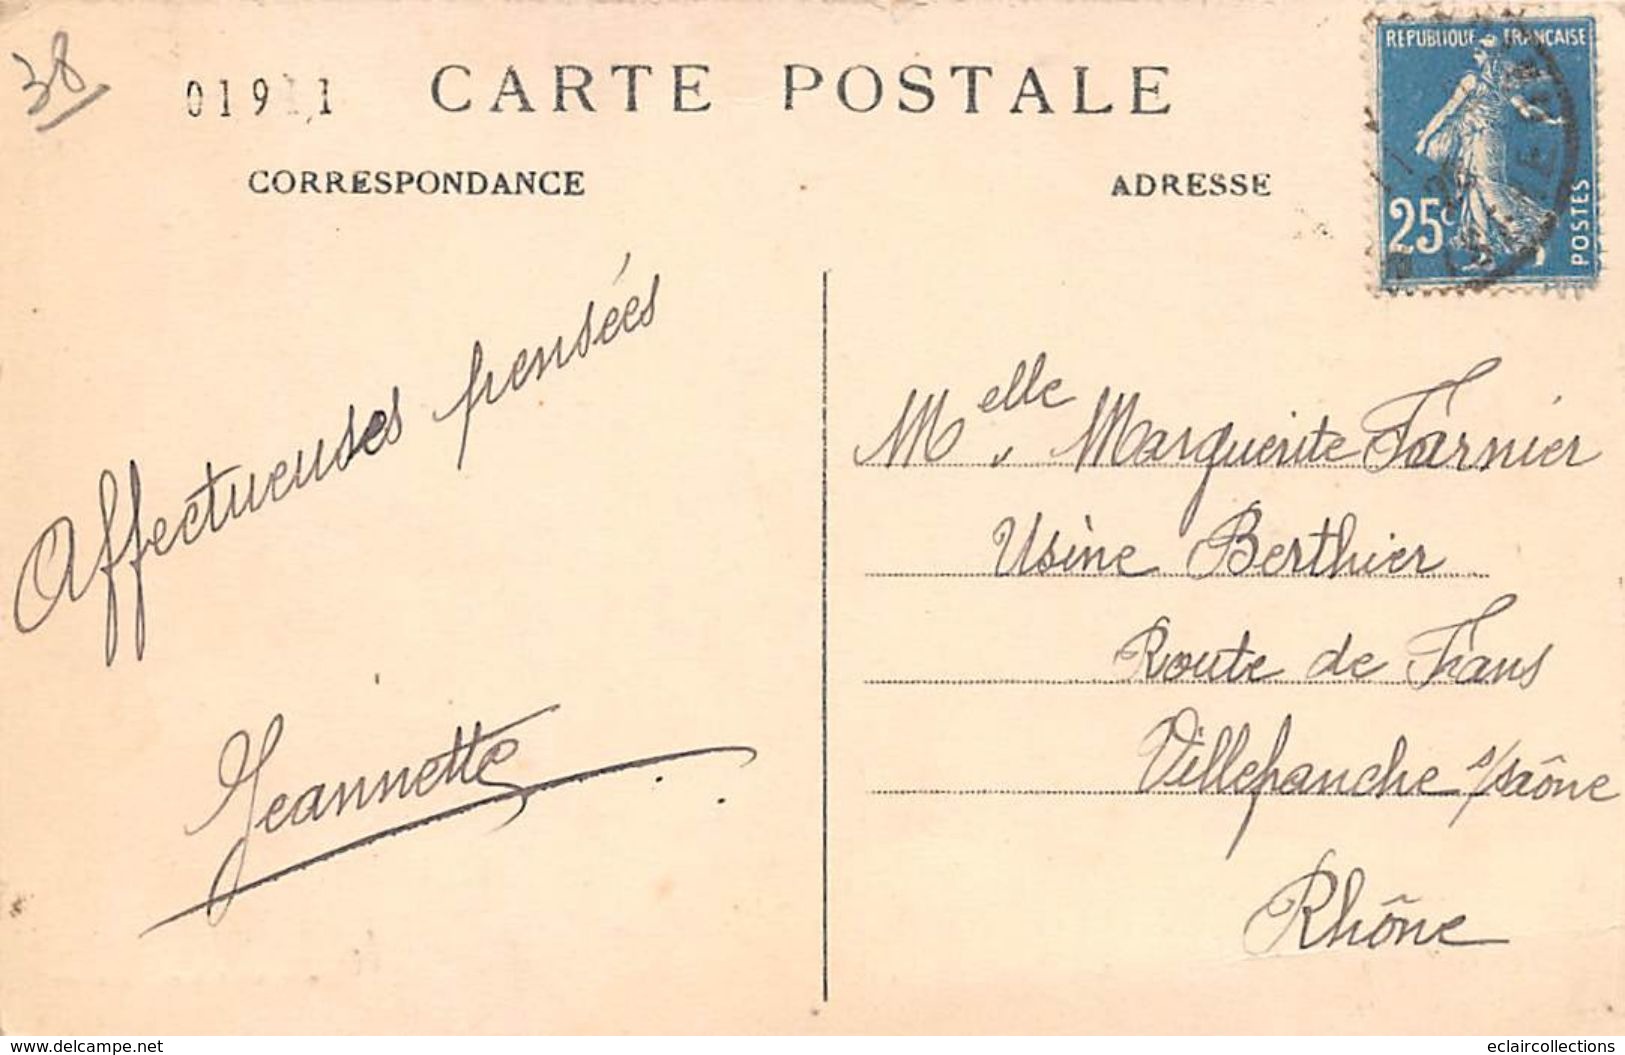 38
CARTE POSTALE
CORRESPONDANCE
ADRESSE
REPUBLIQUE FRANÇAISE
25c
POSTES
Affectueuses pensées
Jeannette
Melle Marguerite Farnier
Usine Berthier
Route de Frans
Villefranche s/saône
Rhône
www.delcampe.net
eclaircollections